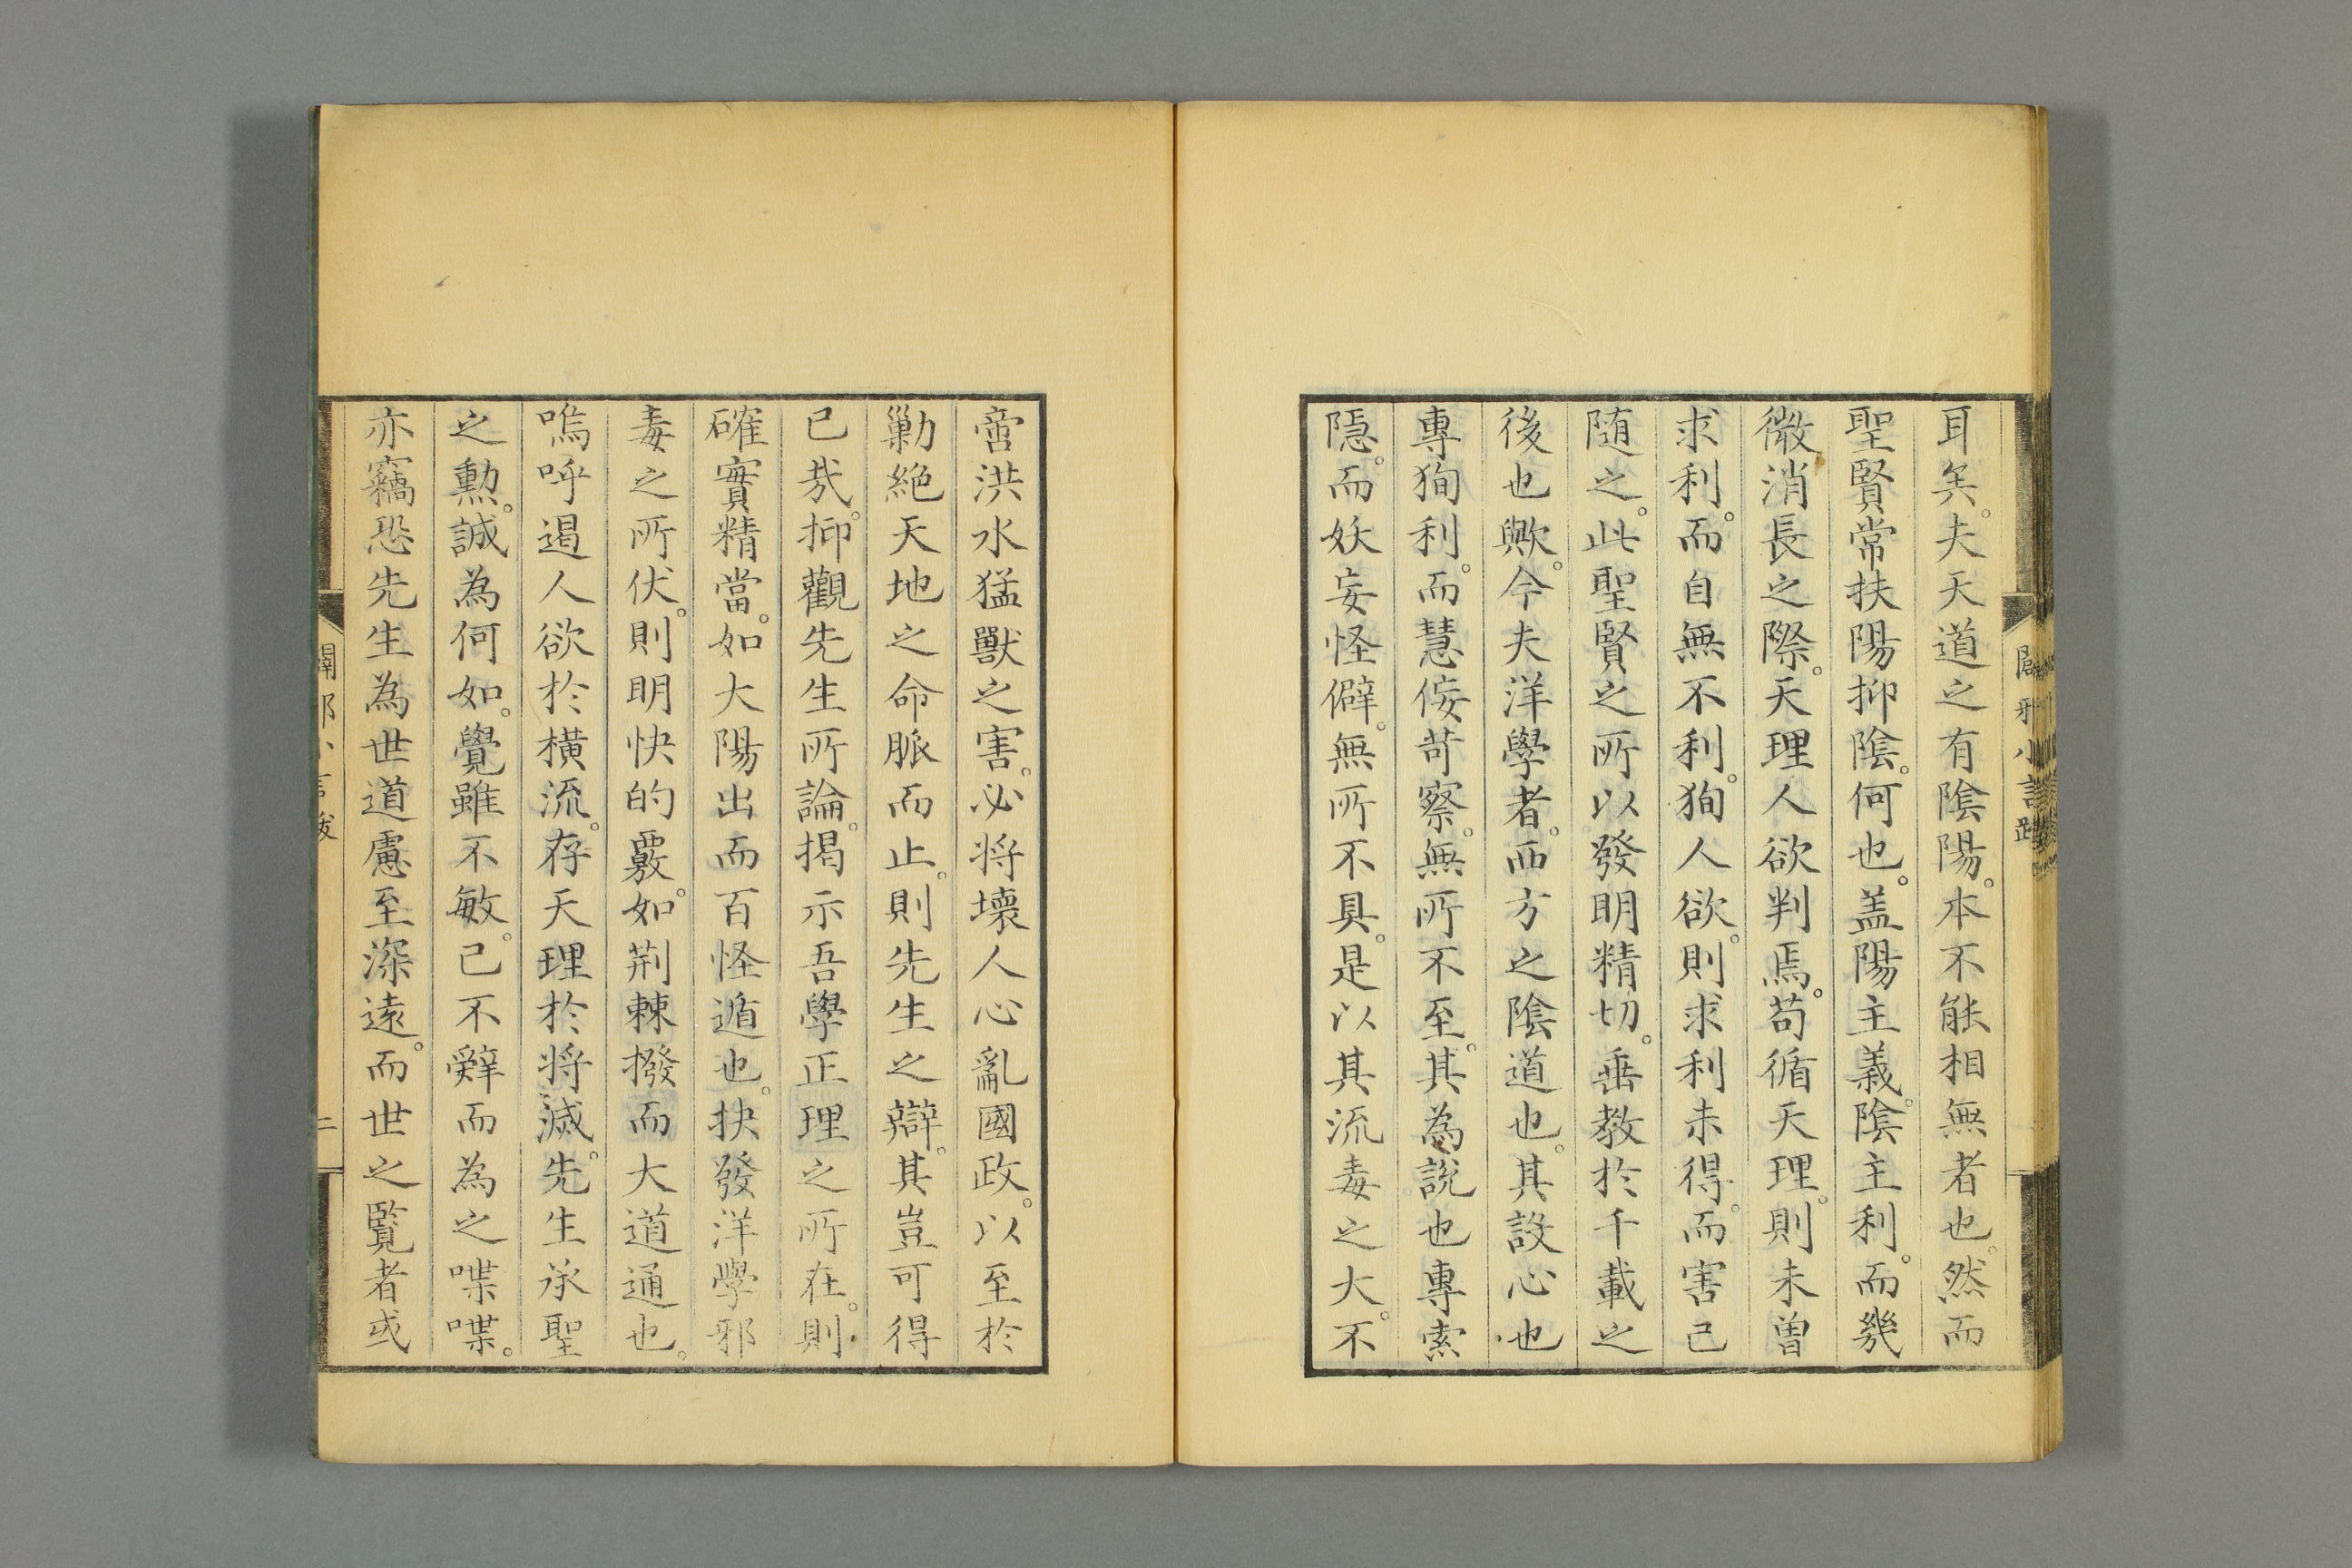 耳矣。夫天道之有陰陽。本不能相無者也。然而
聖賢常扶陽抑陰。何也。盖陽主義。陰主利。而幾
微消長之際。天理人欲判焉。苟循天理。則未曽
求利。而自無不利。狥人欲。則求利未得。而害己
随之。此聖賢之所以發明精切。垂教於千載之
後也歟。今夫洋學者。西方之陰道也。其設心也
專狥利。而慧侫苛察。無所不至。其為說也專索
隠。而妖妄怪僻。無所不具。是以其流毒之大。不
啻洪水猛獸之害。必将壊人心亂國政。以至於
勦絶天地之命脈而止。則先生之辯。其豈可得
已哉。抑觀先生所論。揭示吾學正理之所在。則
確實精當。如大陽出而百怪遁也。抉發洋學邪
毒之所伏。則明快的覈。如荆棘撥而大道通也。
嗚呼遏人欲於橫流。存天理於将滅。先生承聖
之勲。誠為何如。覺雖不敏。已不辤而為之喋喋。
亦竊恐先生為世道慮至深遠。而世之覧者或
闢邪小言跋
二